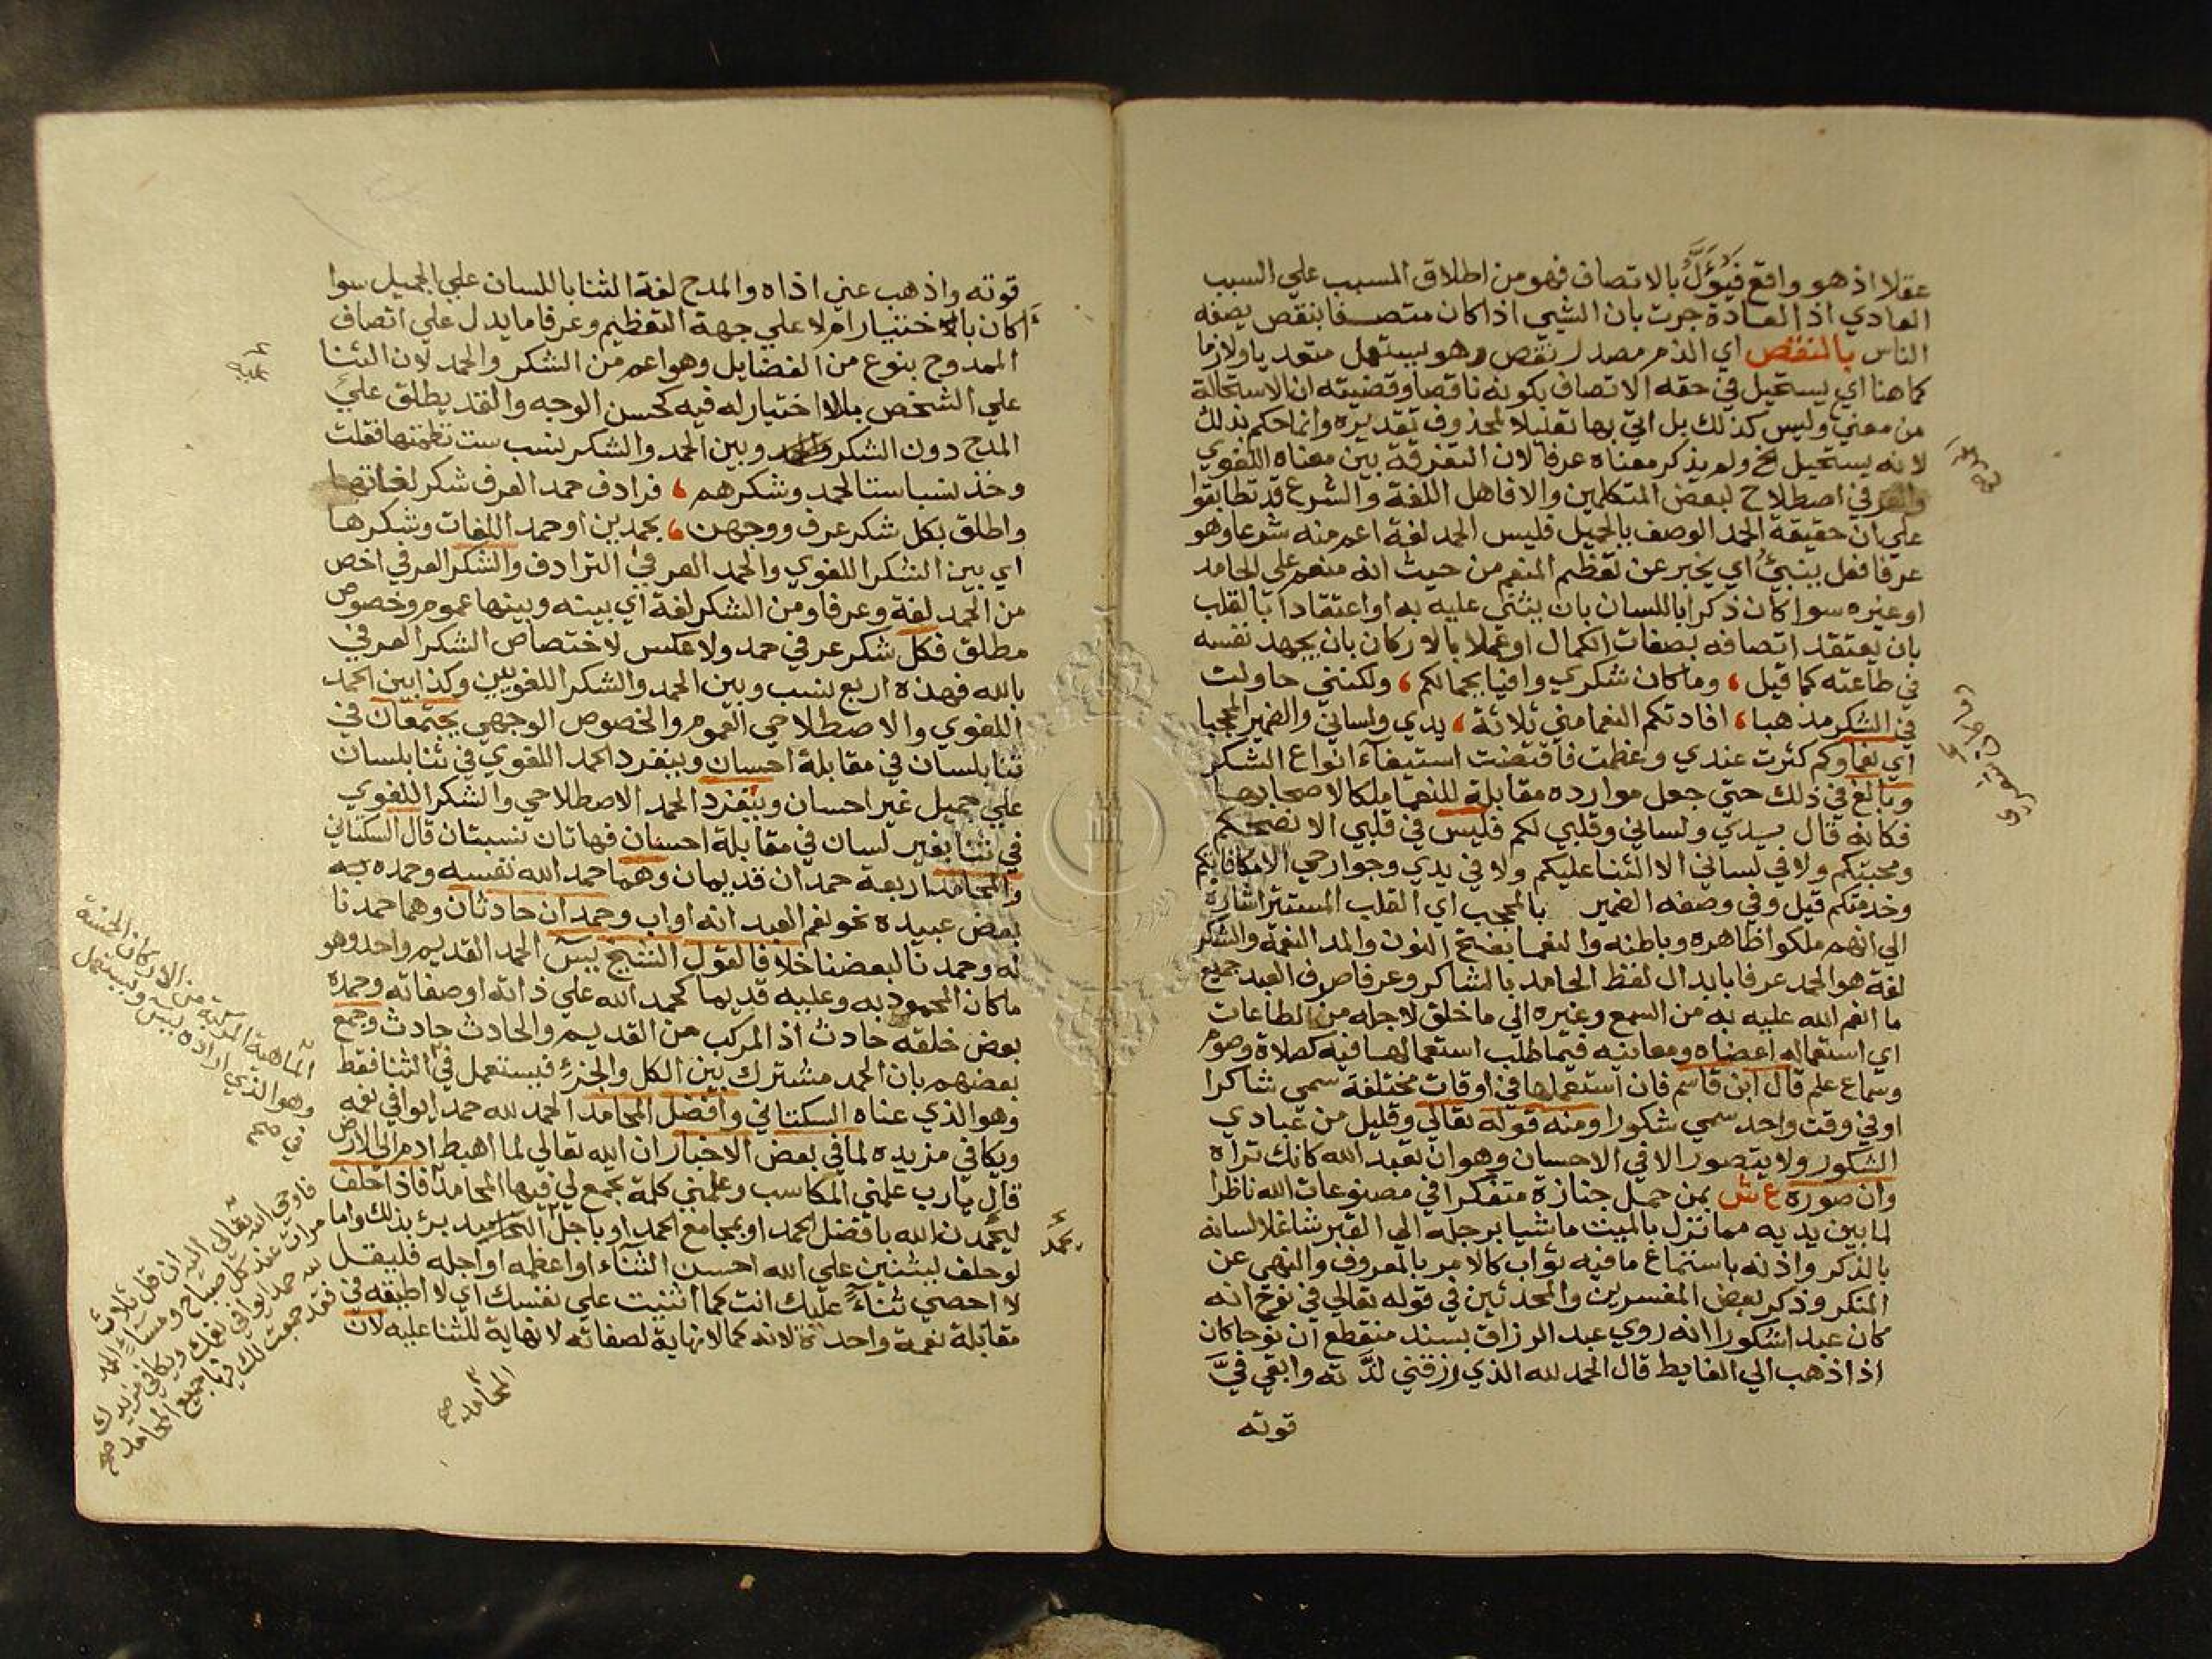 عقلا اذ هو واقع فيؤل بالاتصاف فهو من اطلاق المسبب علي السبب
العادي اذ العادة جرت بان الشيي اذا كان متصفا بنقص يصفه
الناس بالنقص اي الذم مصدر نقص وهو يستعمل متعديا ولازما
كما هنا اي يستحيل في حقه الاتصاف بكونه ناقصا وقضيته ان الاستحالة
من معني وليس كذلك بل اتي بها تعليلا لمحذوف تقديره وانما حكم بذلك
لانه يستحيل الخ ولم يذكر معناه عرفا لان التفرقة بين معناه اللغوي
في اصطلاح لبعض المتكلمين والا فاهل اللغة والشرع قد تطابقوا
علي ان حقيقة الحمد الوصف بالجميل فليس الحمد لغة اعم منه شرعا وهو
عرفا فعل ينبئ اي يخبر عن تعظيم المنعم من حيث انه منعم علي الحامد
او غيره سوا كان ذكرا باللسان بان يثني عليه به او اعتقادا بالقلب
بان يعتقد اتصافه بصفات الكمال او عملا بالاركان بان يجهد نفسه
في طاعته كما قيل ، وما كان شكري وافيا بجمالكم ، ولكنني حاولت
في الشكر مذهبا ، افادتكم النعما مني ثلاثة ، يدي ولساني والضمير المحجبا
اي نعماوكم كثرت عندي وعظمت فاقتضت استيفاء انواع الشكر
وبالغ في ذلك حتي جعل موارده مقابلة للنعما ملكا لاصحابها
فكانه قال يدي ولساني وقلبي لكم فليس في قلبي الا نصحكم
ومحبتكم ولا في لساني الا الثنا عليكم ولا في يدي وجوارحي الا مكافاتكم
وخدمتكم قيل وفي وصفه الضمير بالمحجب اي القلب المستتر اشارة
الي انهم ملكوا ظاهره وباطنه والنعما بفتح النون والمد النعمة والشكر
لغة هو الحمد عرفا بابدال لفظ الحامد بالشاكر وعرفا صرف العبد جميع
ما انعم الله عليه به من السمع وغيره الي ما خلق لاجله من الطاعات
اي استعماله اعضاه ومعانيه فيما طلب استعمالها فيه كصلاة وصوم
وسماع علم قال ابن قاسم فان استعملها في اوقات مختلفة سمي شاكرا
او في وقت واحد سمي شكورا ومنه قوله تعالي وقليل من عبادي
الشكور ولا يتصور الا في الاحسان وهو ان تعبد الله كانك تراه
وان صوره ع ش بمن حمل جنازة متفكرا في مصنوعات الله ناظرا
لما بين يديه مما تزل بالميت ماشيا برجله الي القبر شاغلا لسانه
بالذكر واذنه باستماع ما فيه ثواب كالامر بالمعروف والنهي عن
المنكر وذكر بعض المفسرين والمحدثين في قوله تعالي في نوح انه
كان عبدا شكورا انه روي عبد الرزاق بسند منقطع ان نوحا كان
اذا ذهب الي الغايط قال الحمد لله الذي رزقني لذته وابقي في
قوته
قوته واذهب عني اذاه والمدح لغة الثنا باللسان علي الجميل سوا
اكان بالاختيار ام لا علي جهة التعظيم وعرفا ما يدل علي اتصاف
الممدوح بنوع من الفضايل وهو اعم من الشكر والحمد لان الثنا
علي الشخص بالا اختيار له فيه كحسن الوجه والقد يطلق علي
المدح دون الشكر وبين الحمد والشكر نسب ست نظمتها فقلت
وخذ نسبا ستا لحمد وشكرهم ، فرادف حمد العرف شكر لغاتها
واطلق بكل شكر عرف ووجهن ، بحمدين او حمد اللغات وشكرها
اي بين الشكر اللغوي والحمد العرفي الترادف والشكر العرفي اخص
من الحمد لغة وعرفا ومن الشكر لغة اي بينه وبينها عموم وخصوص
مطلق فكل شكر عرفي حمد ولا عكس لاختصاص الشكر العرفي
بالله فهذه اربع نسب وبين الحمد والشكر اللغويين وكذا بين الحمد
اللغوي والاصطلاحي العموم والخصوص الوجهي يجتمعان في
ثنا بلسان في مقابلة احسان وينفرد الحمد اللغوي في ثنا بلسان
علي جميل غير احسان وينفرد الحمد الاصطلاحي والشكر اللغوي
في ثنا بغير لسان في مقابلة احسان فهاتان نسبتان قال السكتاني
والمحامد اربعة حمدان قديمان وهما حمد الله نفسه وحمده به
بعض عبيده نحو نعم العبد انه اواب وحمدان حادثان وهما حمدنا
له وحمدنا لبعضنا خلافا لقول الشيخ يس الحمد القديم واحد وهو
ما كان المحمود به وعليه قديما كحمد الله علي ذاته او صفاته وحمده
بعض خلقه حادث اذ المركب من القديم والحادث حادث وجمع
بعضهم بان الحمد مشترك بين الكل والجزء فيستعمل في الثنا فقط
وهو الذي عناه السكتاني وافضل المحامد الحمد لله حمدا يوافي نعمه
ويكافي مزيده لما في بعض الاخبار ان الله تعالي لما اهبط ادم الي الارض
قال يارب علمني المكاسب وعلمني كلمة تجمع لي فيها المحامد فاذا حلف
ليحمدن الله بافضل الحمد او بمجامع الحمد او باجل التحاميد بر بذلك واما
لو حلف ليثنين علي الله احسن الثناء او اعظمه او اجله فليقل
لا احصي ثناء عليك انت كما اثنيت علي نفسك اي لا اطيقه في
مقابلة نعمة واحدة لانه كما لا نهاية لصفاته لا نهاية للثنا عليه لان
الماهية المركبة من الاركان الحسنة
وهو الذي اراده يس ويستعمل
في صح
فاوحي الله تعالي اليه ان قل ثلاث
مرات عند كل صباح ومساء الحمد
لله حمدا يوافي نعمك ويكافي مزيدك
فقد جمعت لك فيها جميع المحامد صح
المحامد صح